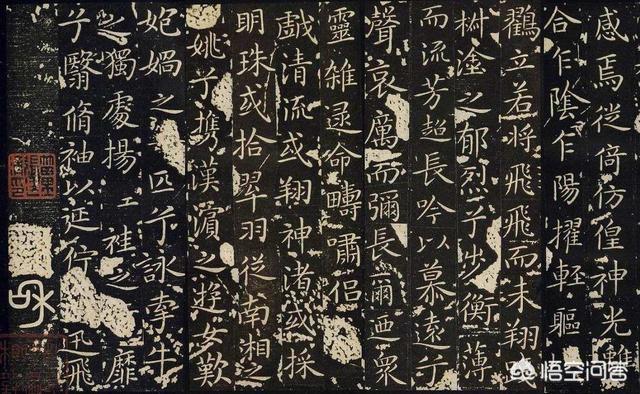 感焉徙倚仿徨神光離
合乍陰乍陽擢輕軀
鶴立若將飛飛而未翔
椒塗之郁烈兮步衡薄
而流芳超長吟以慕遠兮
聲哀厲而彌長爾迺衆
靈雜遝命疇嘯侶
戲清流或翔神渚或採
明珠或拾翠羽從南湘之
姚兮攜漢濱之遊女歎
媧之匹兮詠牽牛
之獨處揚袿之靡
兮翳脩袖以延佇迅飛
悟空问答